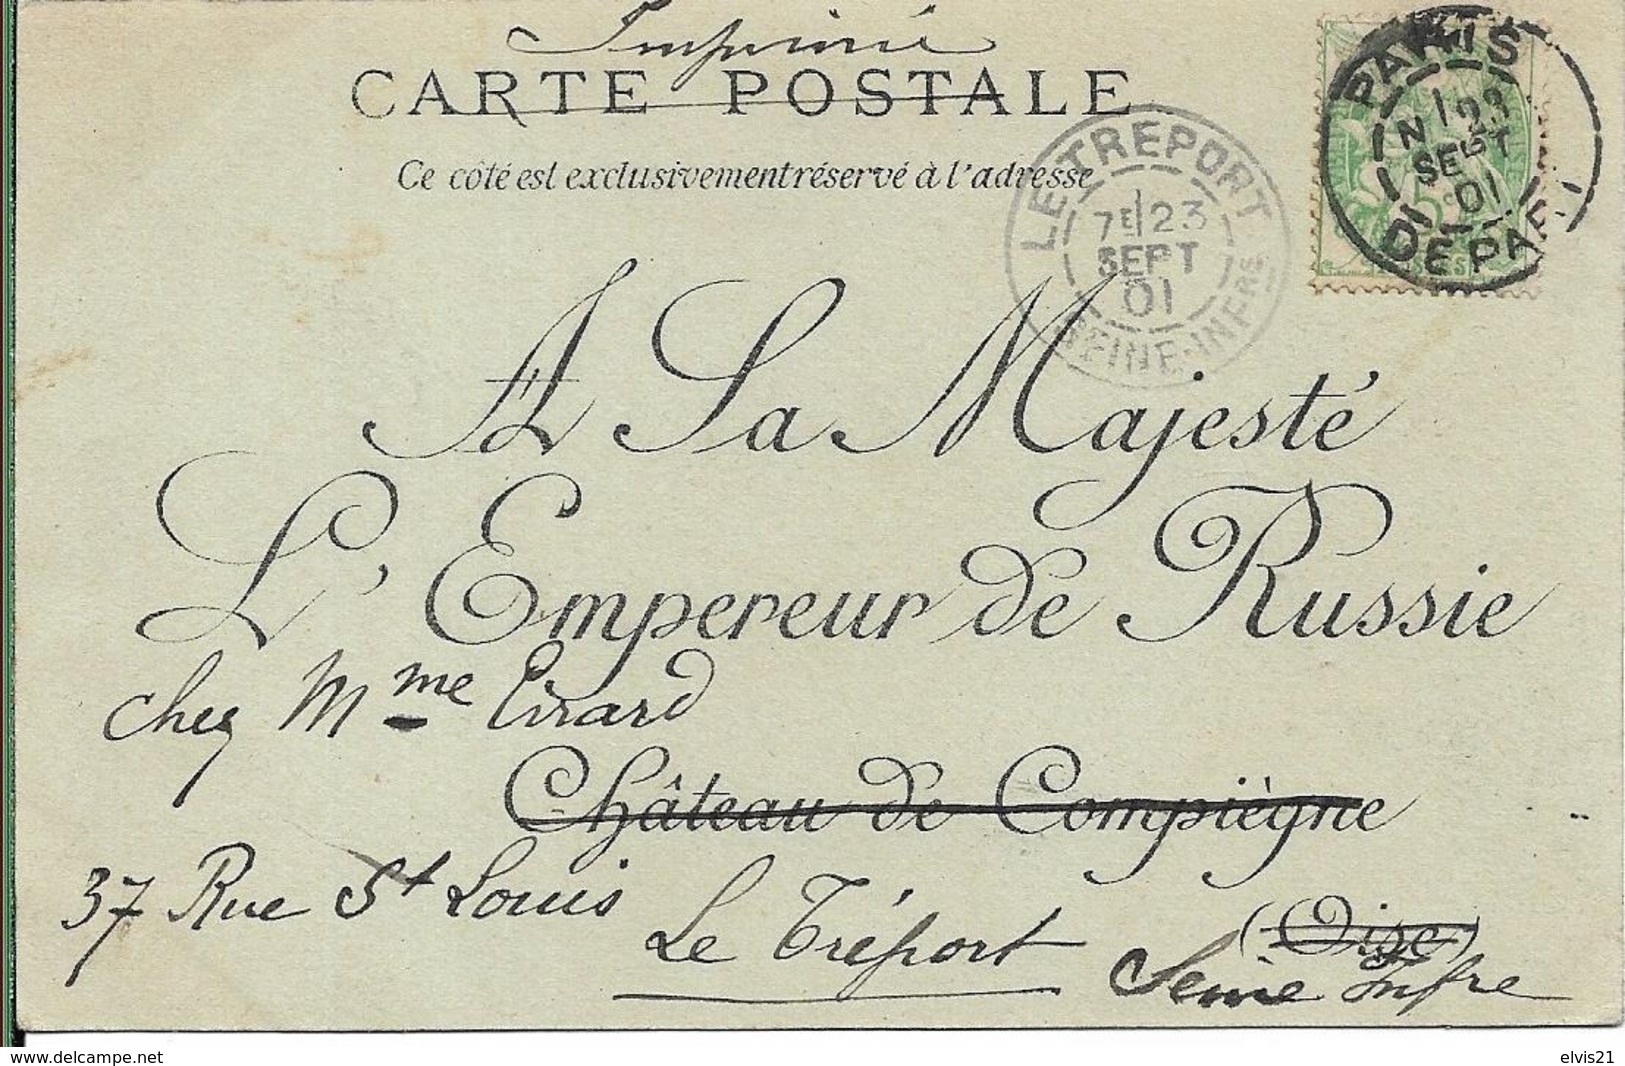 Imprimé
CARTE POSTALE
Ce côté est exclusivement réservé à l'adresse
PARIS
23
SEPT
01
DEPART
LE TREPORT
7E 23
SEPT
01
SEINE-INFRE
A Sa Majesté
L'Empereur de Russie
chez Mme Evrard
Château de Compiègne
37 Rue St Louis
(Oise)
Le Tréport Seine Infre
www.delcampe.net
elvis21